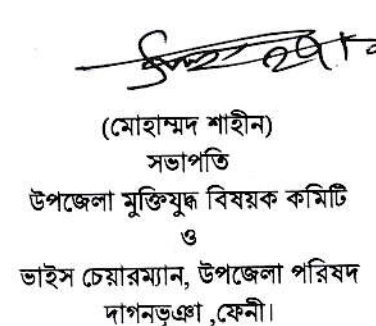 (মোহাম্মদ শাহীন)
সভাপতি
উপজেলা মুক্তিযুদ্ধ বিষয়ক কমিটি
ও
ভাইস চেয়ারম্যান, উপজেলা পরিষদ
দাগনভূঞা ,ফেনী।